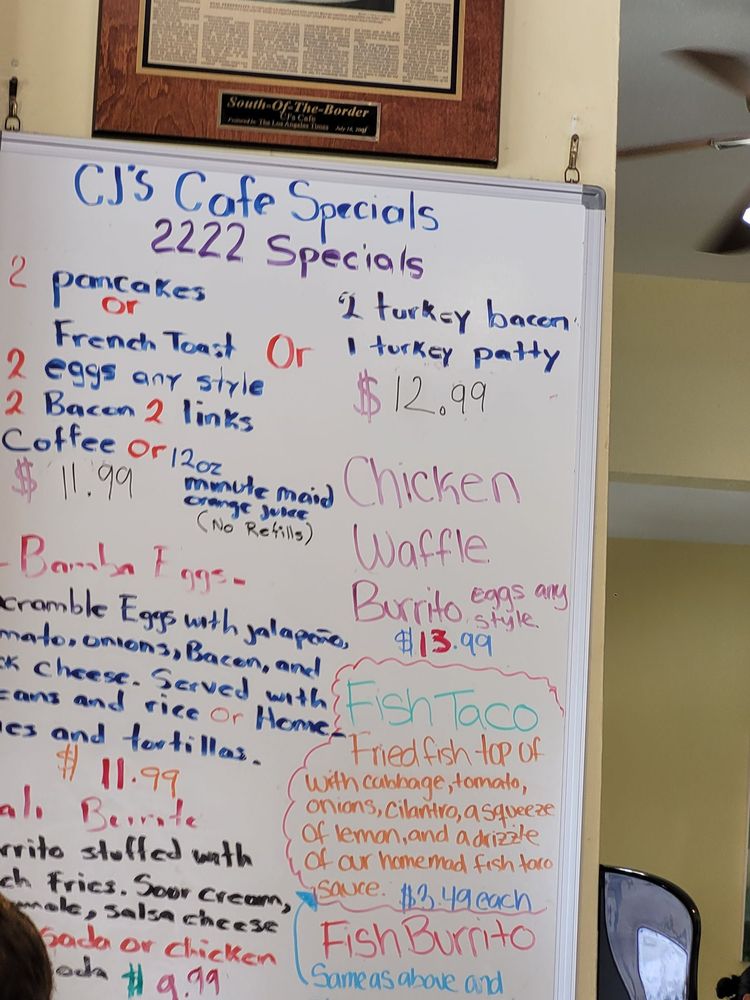 South-Of-The-Border
CJ's Cafe
Featured in The Los Angeles Times July 14,
CJ's Cafe Specials
2222 Specials
2 pancakes
or
French Toast
2 eggs any style
2 Bacon 2 links
Coffee or 12oz
minute maid
orange juice
(No Refills)
$ 11.99
Or
2 turkey bacon
1 turkey patty
$12.99
Chicken
Waffle
Burrito eggs any
style
$13.99
- Bamba Eggs -
cramble Eggs with jalapeño,
mato, onions, Bacon, and
ck cheese. Served with
eans and rice or Home-
ies and tortillas.
$ 11.99
ali Burrito
rrito stuffed with
ch Fries. Sour cream,
mole, salsa cheese
sada or chicken
oda $ 9.99
Fish Taco
Fried fish top of
with cabbage, tomato,
onions, cilantro, a squeeze
of lemon, and a drizzle
of our homemad fish taco
sauce. $3.49 each
Fish Burrito
Same as above and